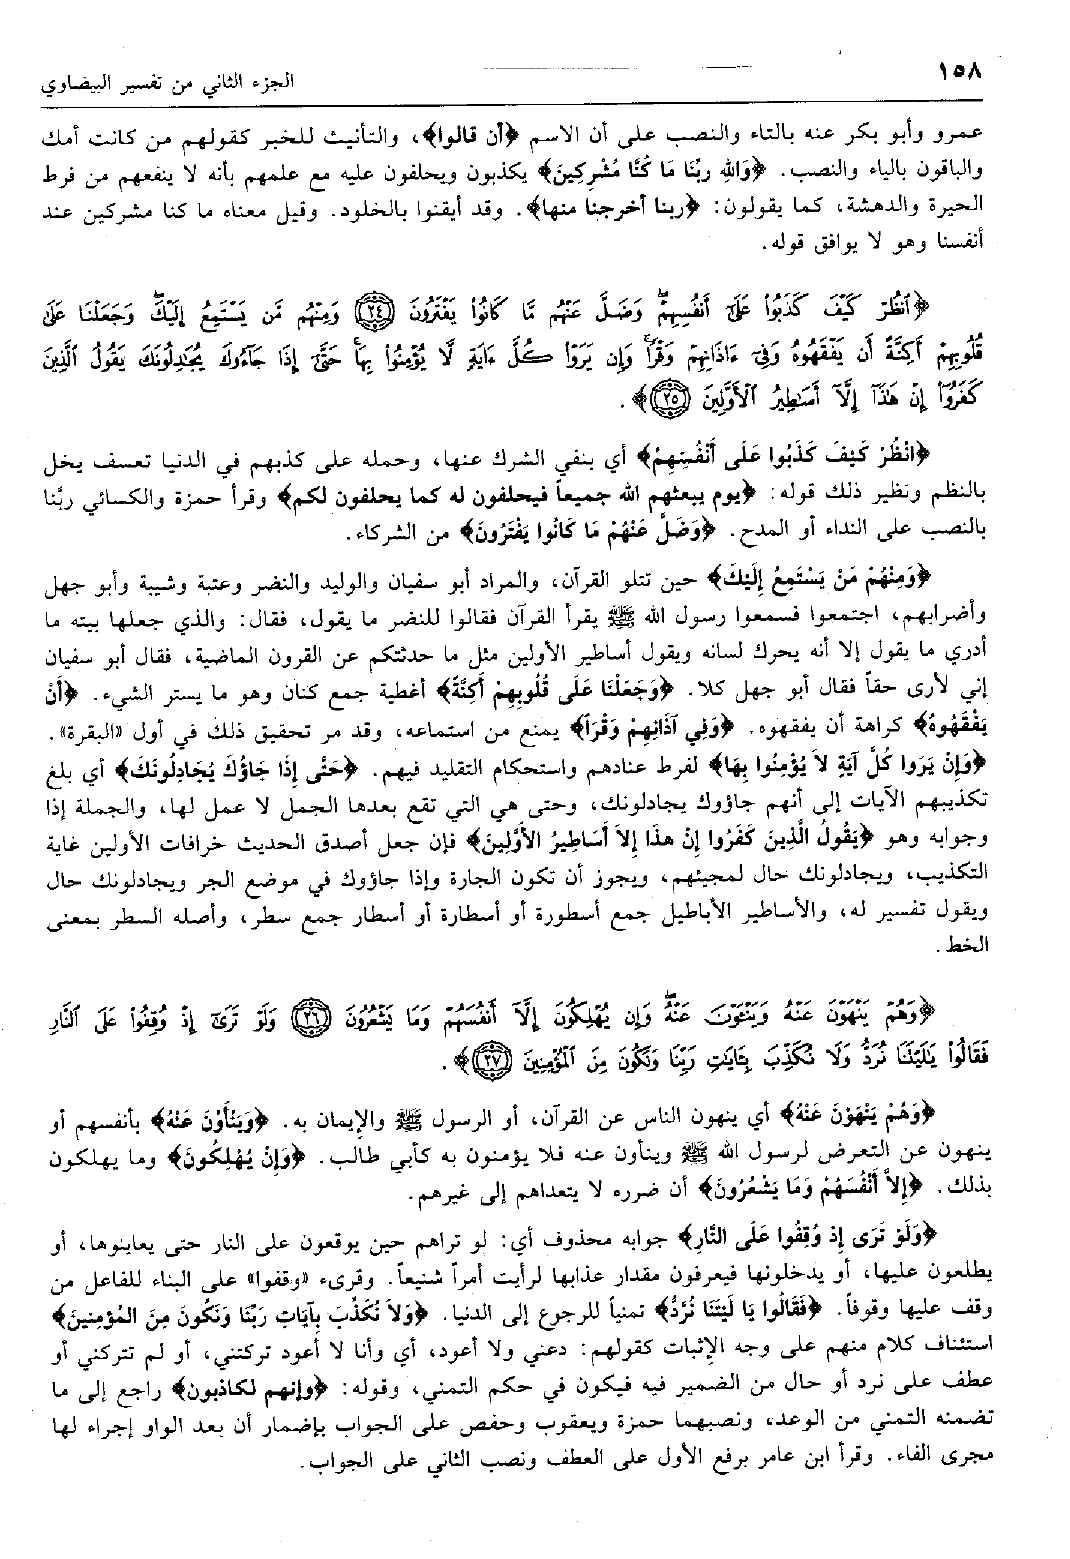 ١٥٨
الجزء الثاني من تفسير البيضاوي
عمرو وأبو بكر عنه بالتاء والنصب على أن الاسم ﴿أن قالوا﴾، والتأنيث للخبر كقولهم من كانت أمك
والباقون بالياء والنصب. ﴿وَاللهِ رَبِّنَا مَا كُنَّا مُشْرِكِينَ﴾ يكذبون ويحلفون عليه مع علمهم بأنه لا ينفعهم من فرط
الحيرة والدهشة، كما يقولون: ﴿ربنا أخرجنا منها﴾. وقد أيقنوا بالخلود. وقيل معناه ما كنا مشركين عند
أنفسنا وهو لا يوافق قوله.
﴿ٱنظُرْ كَيْفَ كَذَبُوا۟ عَلَىٰٓ أَنفُسِهِمْ ۚ وَضَلَّ عَنْهُم مَّا كَانُوا۟ يَفْتَرُونَ ﴿٢٤﴾ وَمِنْهُم مَّن يَسْتَمِعُ إِلَيْكَ ۖ وَجَعَلْنَا عَلَىٰ
قُلُوبِهِمْ أَكِنَّةً أَن يَفْقَهُوهُ وَفِىٓ ءَاذَانِهِمْ وَقْرًا ۚ وَإِن يَرَوْا۟ كُلَّ ءَايَةٍ لَّا يُؤْمِنُوا۟ بِهَا ۚ حَتَّىٰٓ إِذَا جَآءُوكَ يُجَٰدِلُونَكَ يَقُولُ ٱلَّذِينَ
كَفَرُوٓا۟ إِنْ هَٰذَآ إِلَّآ أَسَٰطِيرُ ٱلْأَوَّلِينَ ﴿٢٥﴾﴾.
﴿انْظُرْ كَيْفَ كَذَبُوا عَلَى أَنْفُسِهِمْ﴾ أي بنفي الشرك عنها، وحمله على كذبهم في الدنيا تعسف يخل
بالنظم ونظير ذلك قوله: ﴿يوم يبعثهم الله جميعاً فيحلفون له كما يحلفون لكم﴾ وقرأ حمزة والكسائي ربَّنا
بالنصب على النداء أو المدح. ﴿وَضَلَّ عَنْهُمْ مَا كَانُوا يَفْتَرُونَ﴾ من الشركاء.
﴿وَمِنْهُمْ مَنْ يَسْتَمِعُ إِلَيْكَ﴾ حين تتلو القرآن، والمراد أبو سفيان والوليد والنضر وعتبة وشيبة وأبو جهل
وأضرابهم، اجتمعوا فسمعوا رسول الله ﷺ يقرأ القرآن فقالوا للنضر ما يقول، فقال: والذي جعلها بيته ما
أدري ما يقول إلا أنه يحرك لسانه ويقول أساطير الأولين مثل ما حدثتكم عن القرون الماضية، فقال أبو سفيان
إني لأرى حقاً فقال أبو جهل كلا. ﴿وَجَعَلْنَا عَلَى قُلُوبِهِمْ أَكِنَّةً﴾ أغطية جمع كنان وهو ما يستر الشيء. ﴿أَنْ
يَفْقَهُوهُ﴾ كراهة أن يفقهوه. ﴿وَفِي آذَانِهِمْ وَقْرَاً﴾ يمنع من استماعه، وقد مر تحقيق ذلك في أول «البقرة».
﴿وَإِنْ يَرَوا كُلَّ آيَةٍ لاَ يُؤْمِنُوا بِهَا﴾ لفرط عنادهم واستحكام التقليد فيهم. ﴿حَتَّى إِذَا جَاؤُكَ يُجَادِلُونَكَ﴾ أي بلغ
تكذيبهم الآيات إلى أنهم جاؤوك يجادلونك، وحتى هي التي تقع بعدها الجمل لا عمل لها، والجملة إذا
وجوابه وهو ﴿يَقُولُ الَّذِينَ كَفَرُوا إِنْ هَذَا إِلاَ أَسَاطِيرُ الأَوَّلِينَ﴾ فإن جعل أصدق الحديث خرافات الأولين غاية
التكذيب، ويجادلونك حال لمجيئهم، ويجوز أن تكون الجارة وإذا جاؤوك في موضع الجر ويجادلونك حال
ويقول تفسير له، والأساطير الأباطيل جمع أسطورة أو أسطارة أو أسطار جمع سطر، وأصله السطر بمعنى
الخط.
﴿وَهُمْ يَنْهَوْنَ عَنْهُ وَيَنْـَٔوْنَ عَنْهُ ۖ وَإِن يُهْلِكُونَ إِلَّآ أَنفُسَهُمْ وَمَا يَشْعُرُونَ ﴿٢٦﴾ وَلَوْ تَرَىٰٓ إِذْ وُقِفُوا۟ عَلَى ٱلنَّارِ
فَقَالُوا۟ يَٰلَيْتَنَا نُرَدُّ وَلَا نُكَذِّبَ بِـَٔايَٰتِ رَبِّنَا وَنَكُونَ مِنَ ٱلْمُؤْمِنِينَ ﴿٢٧﴾﴾.
﴿وَهُمْ يَنْهَوْنَ عَنْهُ﴾ أي ينهون الناس عن القرآن، أو الرسول ﷺ والإِيمان به. ﴿وَيَنْأَوْنَ عَنْهُ﴾ بأنفسهم أو
ينهون عن التعرض لرسول الله ﷺ وينأون عنه فلا يؤمنون به كأبي طالب. ﴿وَإِنْ يُهْلِكُونَ﴾ وما يهلكون
بذلك. ﴿إِلاَّ أَنْفُسَهُمْ وَمَا يَشْعُرُونَ﴾ أن ضرره لا يتعداهم إلى غيرهم.
﴿وَلَوْ تَرَى إِذْ وُقِفُوا عَلَى النَّارِ﴾ جوابه محذوف أي: لو تراهم حين يوقعون على النار حتى يعاينوها، أو
يطلعون عليها، أو يدخلونها فيعرفون مقدار عذابها لرأيت أمراً شنيعاً. وقرىء «وقفوا» على البناء للفاعل من
وقف عليها وقوفاً. ﴿فَقَالُوا يَا لَيْتَنَا نُرَدُّ﴾ تمنياً للرجوع إلى الدنيا. ﴿وَلاَ نُكَذِّبَ بِآيَاتِ رَبِّنَا وَنَكُونَ مِنَ المُؤْمِنينَ﴾
استئناف كلام منهم على وجه الإِثبات كقولهم: دعني ولا أعود، أي وأنا لا أعود تركتني، أو لم تتركني أو
عطف على نرد أو حال من الضمير فيه فيكون في حكم التمني، وقوله: ﴿وإنهم لكاذبون﴾ راجع إلى ما
تضمنه التمني من الوعد، ونصبهما حمزة ويعقوب وحفص على الجواب بإضمار أن بعد الواو إجراء لها
مجرى الفاء. وقرأ ابن عامر برفع الأول على العطف ونصب الثاني على الجواب.